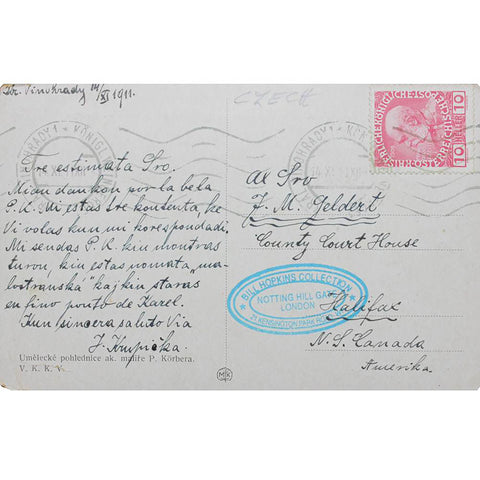 Kr. Vinohrady 14/XI 1911.
CZECH
Tre estimata Sro.
Mian dankon por la bela
P.K. Mi estas tre kontenta, ke
Vi volas kun mi korespondadi.
Mi sendas P.K. kiu montras
turon, kiu estas nomata „ma-
lostranská" kaj kiu staras
en fino ponto de Karel.
Kun sincera saluto Via
J. Krupička.
Umělecké pohlednice ak. malíře P. Körbera.
V. K. K. V.
MK
10 HELLER 10
Al Sro
F. M. Geldert
County Court House
Halifax
N. S. Canada
Amerika.
BILL HOPKINS COLLECTION
NOTTING HILL GATE
LONDON
KENSINGTON PARK